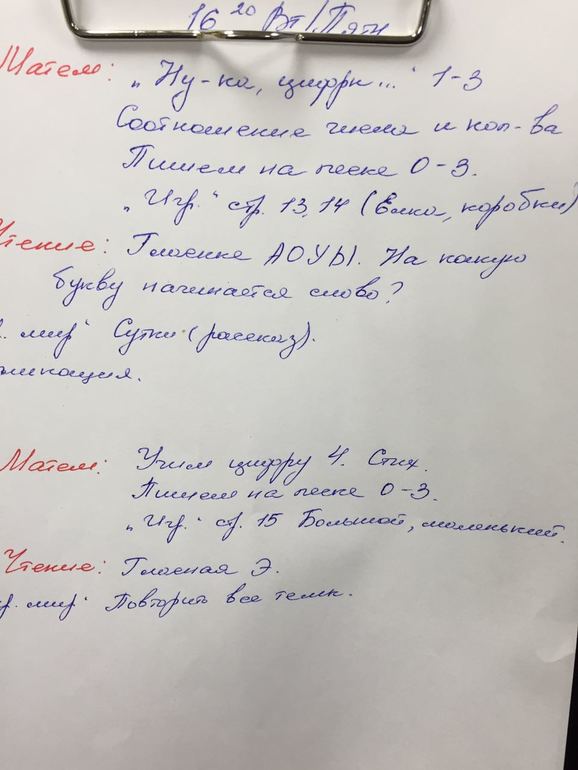 16 20 Вт/Пятн
Матем: „Ну-ка, цифры..." 1-3
Соотношение числа и кол-ва
Пишем на песке 0-3.
„Игр." стр. 13, 14 (Ёлка, коробки)
Чтение: Гласные АОУЫ. На какую
букву начинается слово?
р. мир" Сутки (рассказ).
пликация.
Матем: Учим цифру 4. Стих.
Пишем на песке 0-3.
„Игр." стр. 15 Большой, маленький.
Чтение: Гласная Э.
р. мир" Повторить все темы.